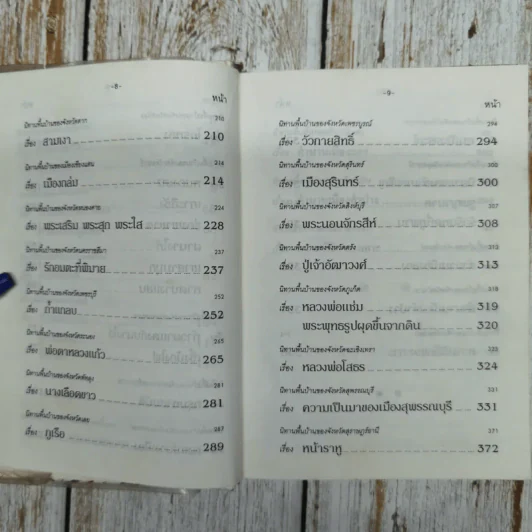 -8-
หน้า
นิทานพื้นบ้านของจังหวัดตาก 210
เรื่อง สามเงา 210
นิทานพื้นบ้านของเมืองเชียงแสน 214
เรื่อง เมืองถล่ม 214
นิทานพื้นบ้านของจังหวัดหนองคาย 228
เรื่อง พระเสริม พระสุก พระใส 228
นิทานพื้นบ้านของจังหวัดนครราชสีมา 237
เรื่อง รักอมตะที่พิมาย 237
นิทานพื้นบ้านของจังหวัดเพชรบุรี 252
เรื่อง ถ้ำแกลบ 252
นิทานพื้นบ้านของจังหวัดระนอง 265
เรื่อง พ่อตาหลวงแก้ว 265
นิทานพื้นบ้านของจังหวัดพัทลุง 281
เรื่อง นางเลือดขาว 281
นิทานพื้นบ้านของจังหวัดเลย 287
เรื่อง ภูเรือ 289
-9-
หน้า
นิทานพื้นบ้านของจังหวัดเพชรบูรณ์ 294
เรื่อง วัวกายสิทธิ์ 294
นิทานพื้นบ้านของจังหวัดสุรินทร์ 300
เรื่อง เมืองสุรินทร์ 300
นิทานพื้นบ้านของจังหวัดสิงห์บุรี 308
เรื่อง พระนอนจักรสีห์ 308
นิทานพื้นบ้านของจังหวัดตรัง 313
เรื่อง ปู่เจ้าอัฒาวงศ์ 313
นิทานพื้นบ้านของจังหวัดภูเก็ต 319
เรื่อง หลวงพ่อแช่ม 319
พระพุทธรูปผุดขึ้นจากดิน 320
นิทานพื้นบ้านของจังหวัดฉะเชิงเทรา
เรื่อง หลวงพ่อโสธร 324
นิทานพื้นบ้านของจังหวัดสุพรรณบุรี 331
เรื่อง ความเป็นมาของเมืองสุพรรณบุรี 331
นิทานพื้นบ้านของจังหวัดสุราษฎร์ธานี 371
เรื่อง หน้าราหู 372